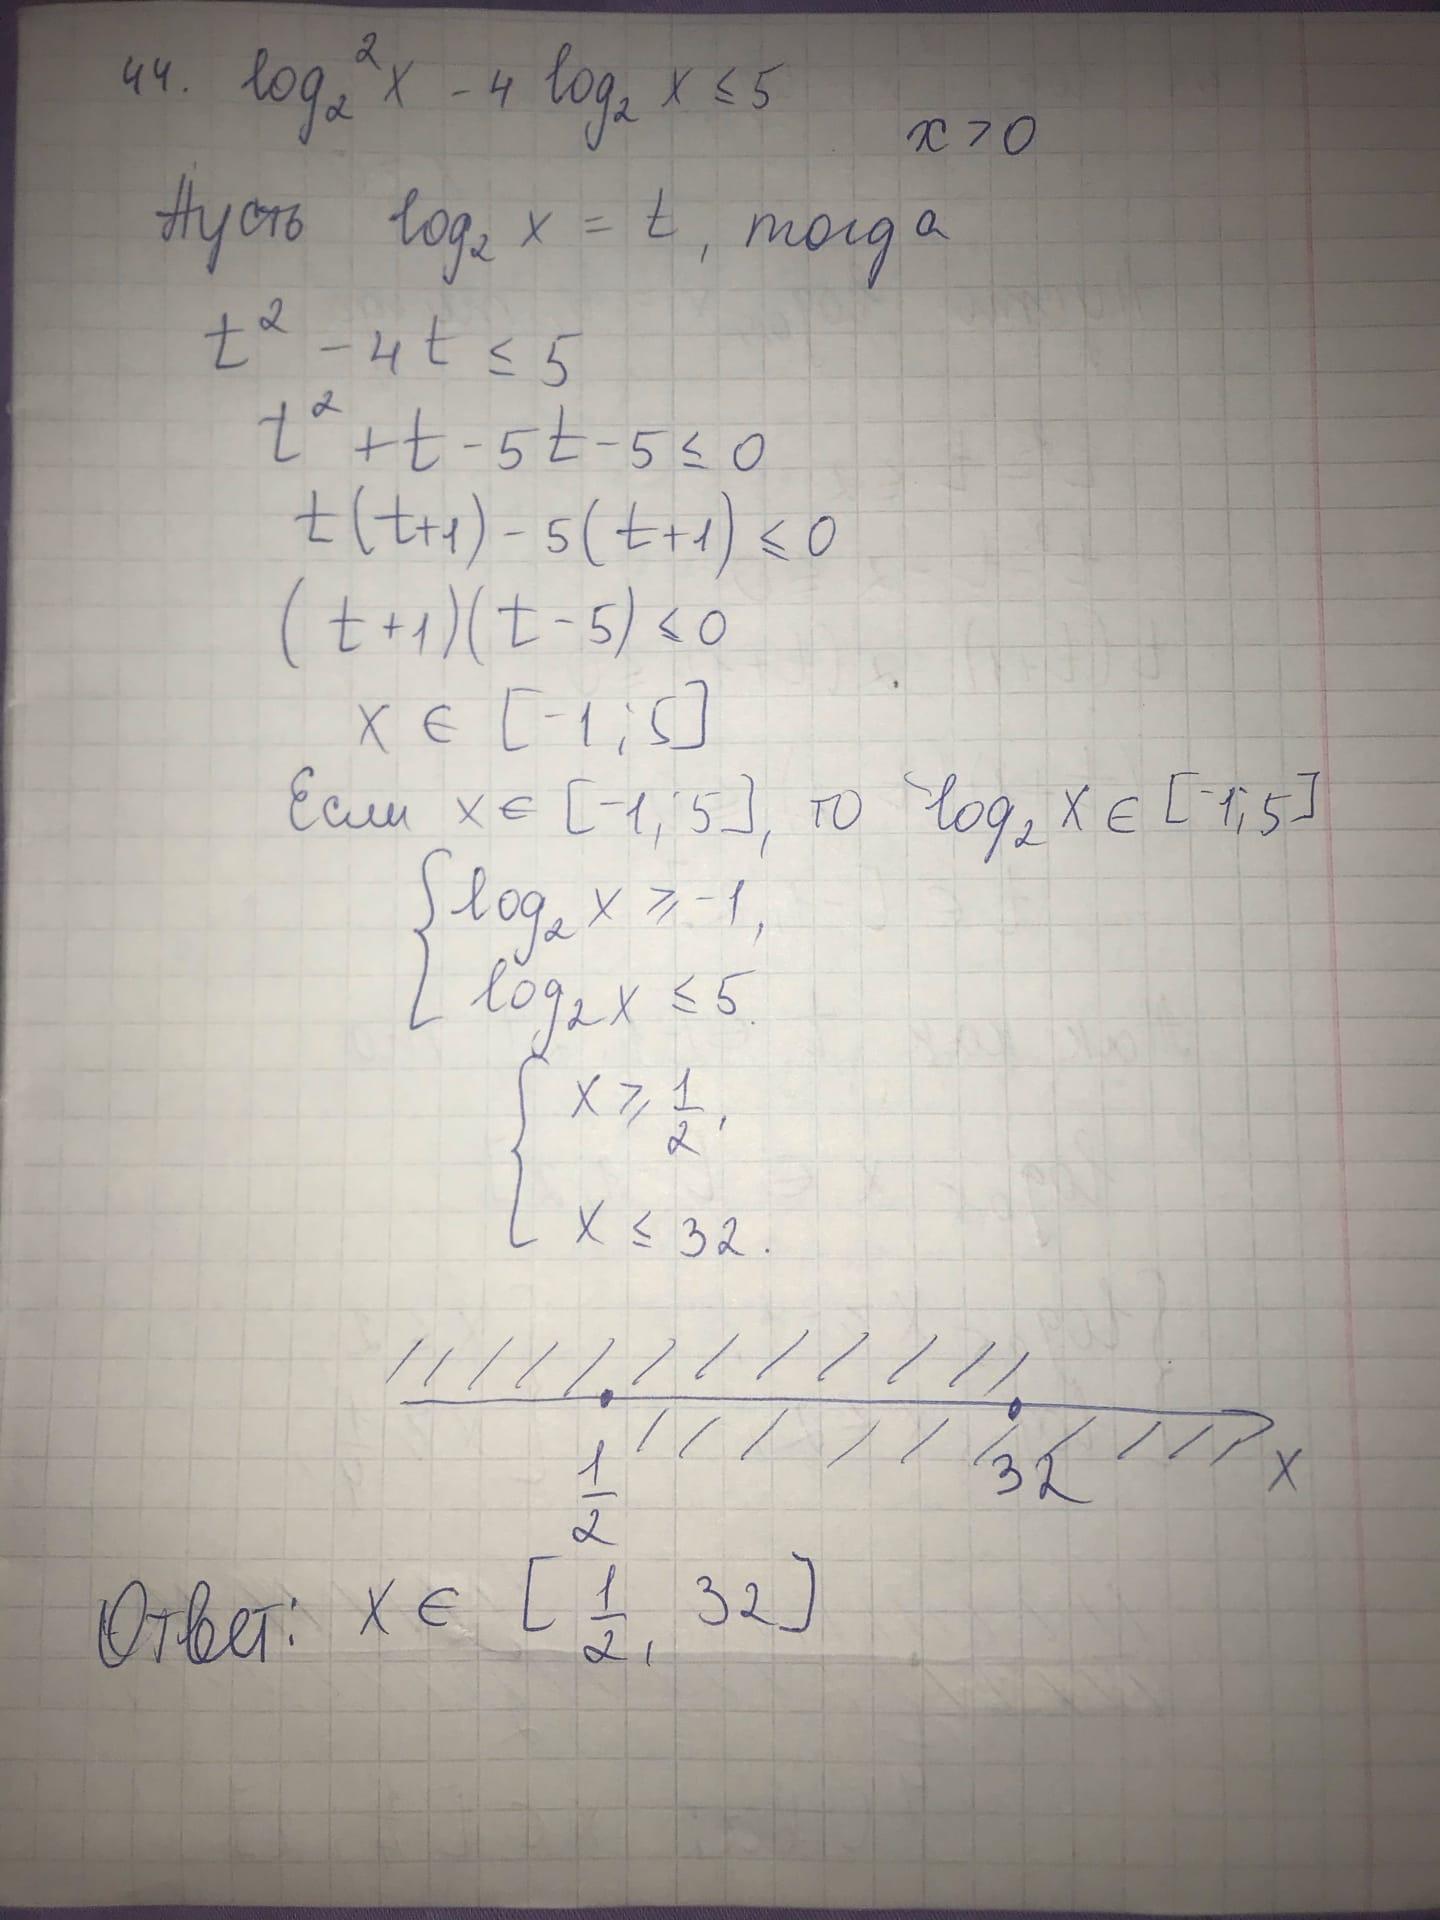 44. log₂²x - 4 log₂ x ≤ 5
x > 0
Пусть log₂ x = t, тогда
t² - 4t ≤ 5
t² + t - 5t - 5 ≤ 0
t(t+1) - 5(t+1) ≤ 0
(t+1)(t-5) ≤ 0
x ∈ [-1; 5]
Если x ∈ [-1; 5], то log₂ x ∈ [-1; 5]
{ log₂ x ≥ -1,
log₂ x ≤ 5.
{ x ≥ 1/2,
x ≤ 32.
1/2 32 x
Ответ: x ∈ [1/2, 32]